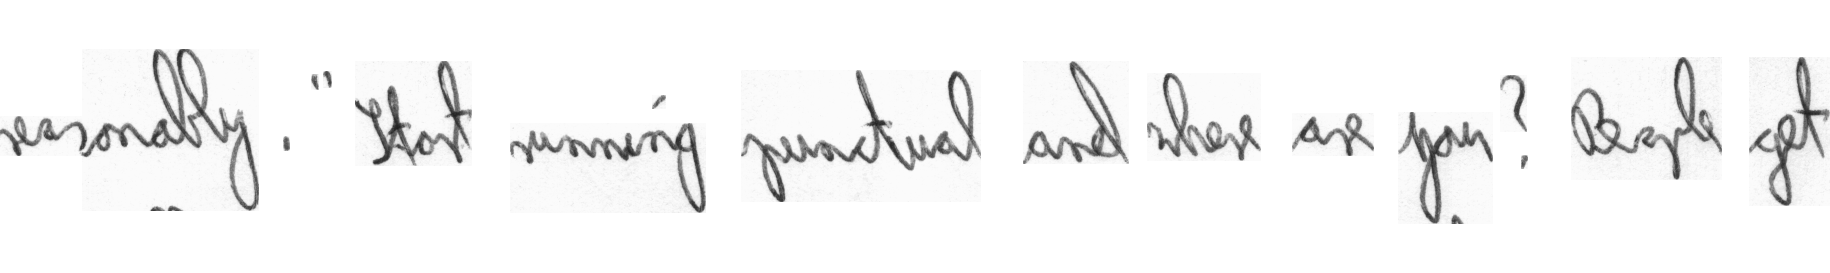 reasonably. "Start running punctual and where are you? People get